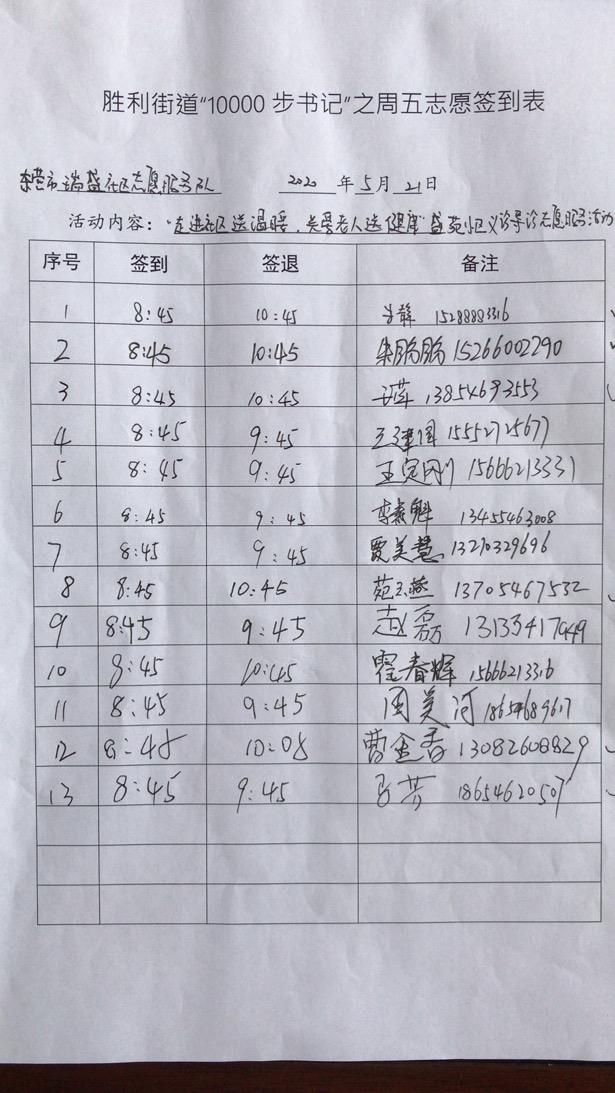 胜利街道“10000 步书记”之周五志愿签到表
东营市瑞盛社区志愿服务队 2020 年 5 月 21 日
活动内容：“走进社区送温暖，关爱老人送健康”盛苑小区义诊导诊志愿服务活动
序号 签到 签退 备注
1 8:45 10:45 15288883316
2 8:45 10:45 15266002290
3 8:45 10:45 13854693553
4 8:45 9:45 王建国 15552725677
5 8:45 9:45 王定刚 15666213331
6 8:45 9:45 13455463008
7 8:45 9:45 贾美慧 13210329696
8 8:45 10:45 苑玉燕 13705467532
9 8:45 9:45 赵磊
10 8:45 10:45 霍春辉 15666213316
11 8:45 9:45 周美河
12 8:45 10:05 曹金香 13082608829
13 8:45 9:45 18654620507